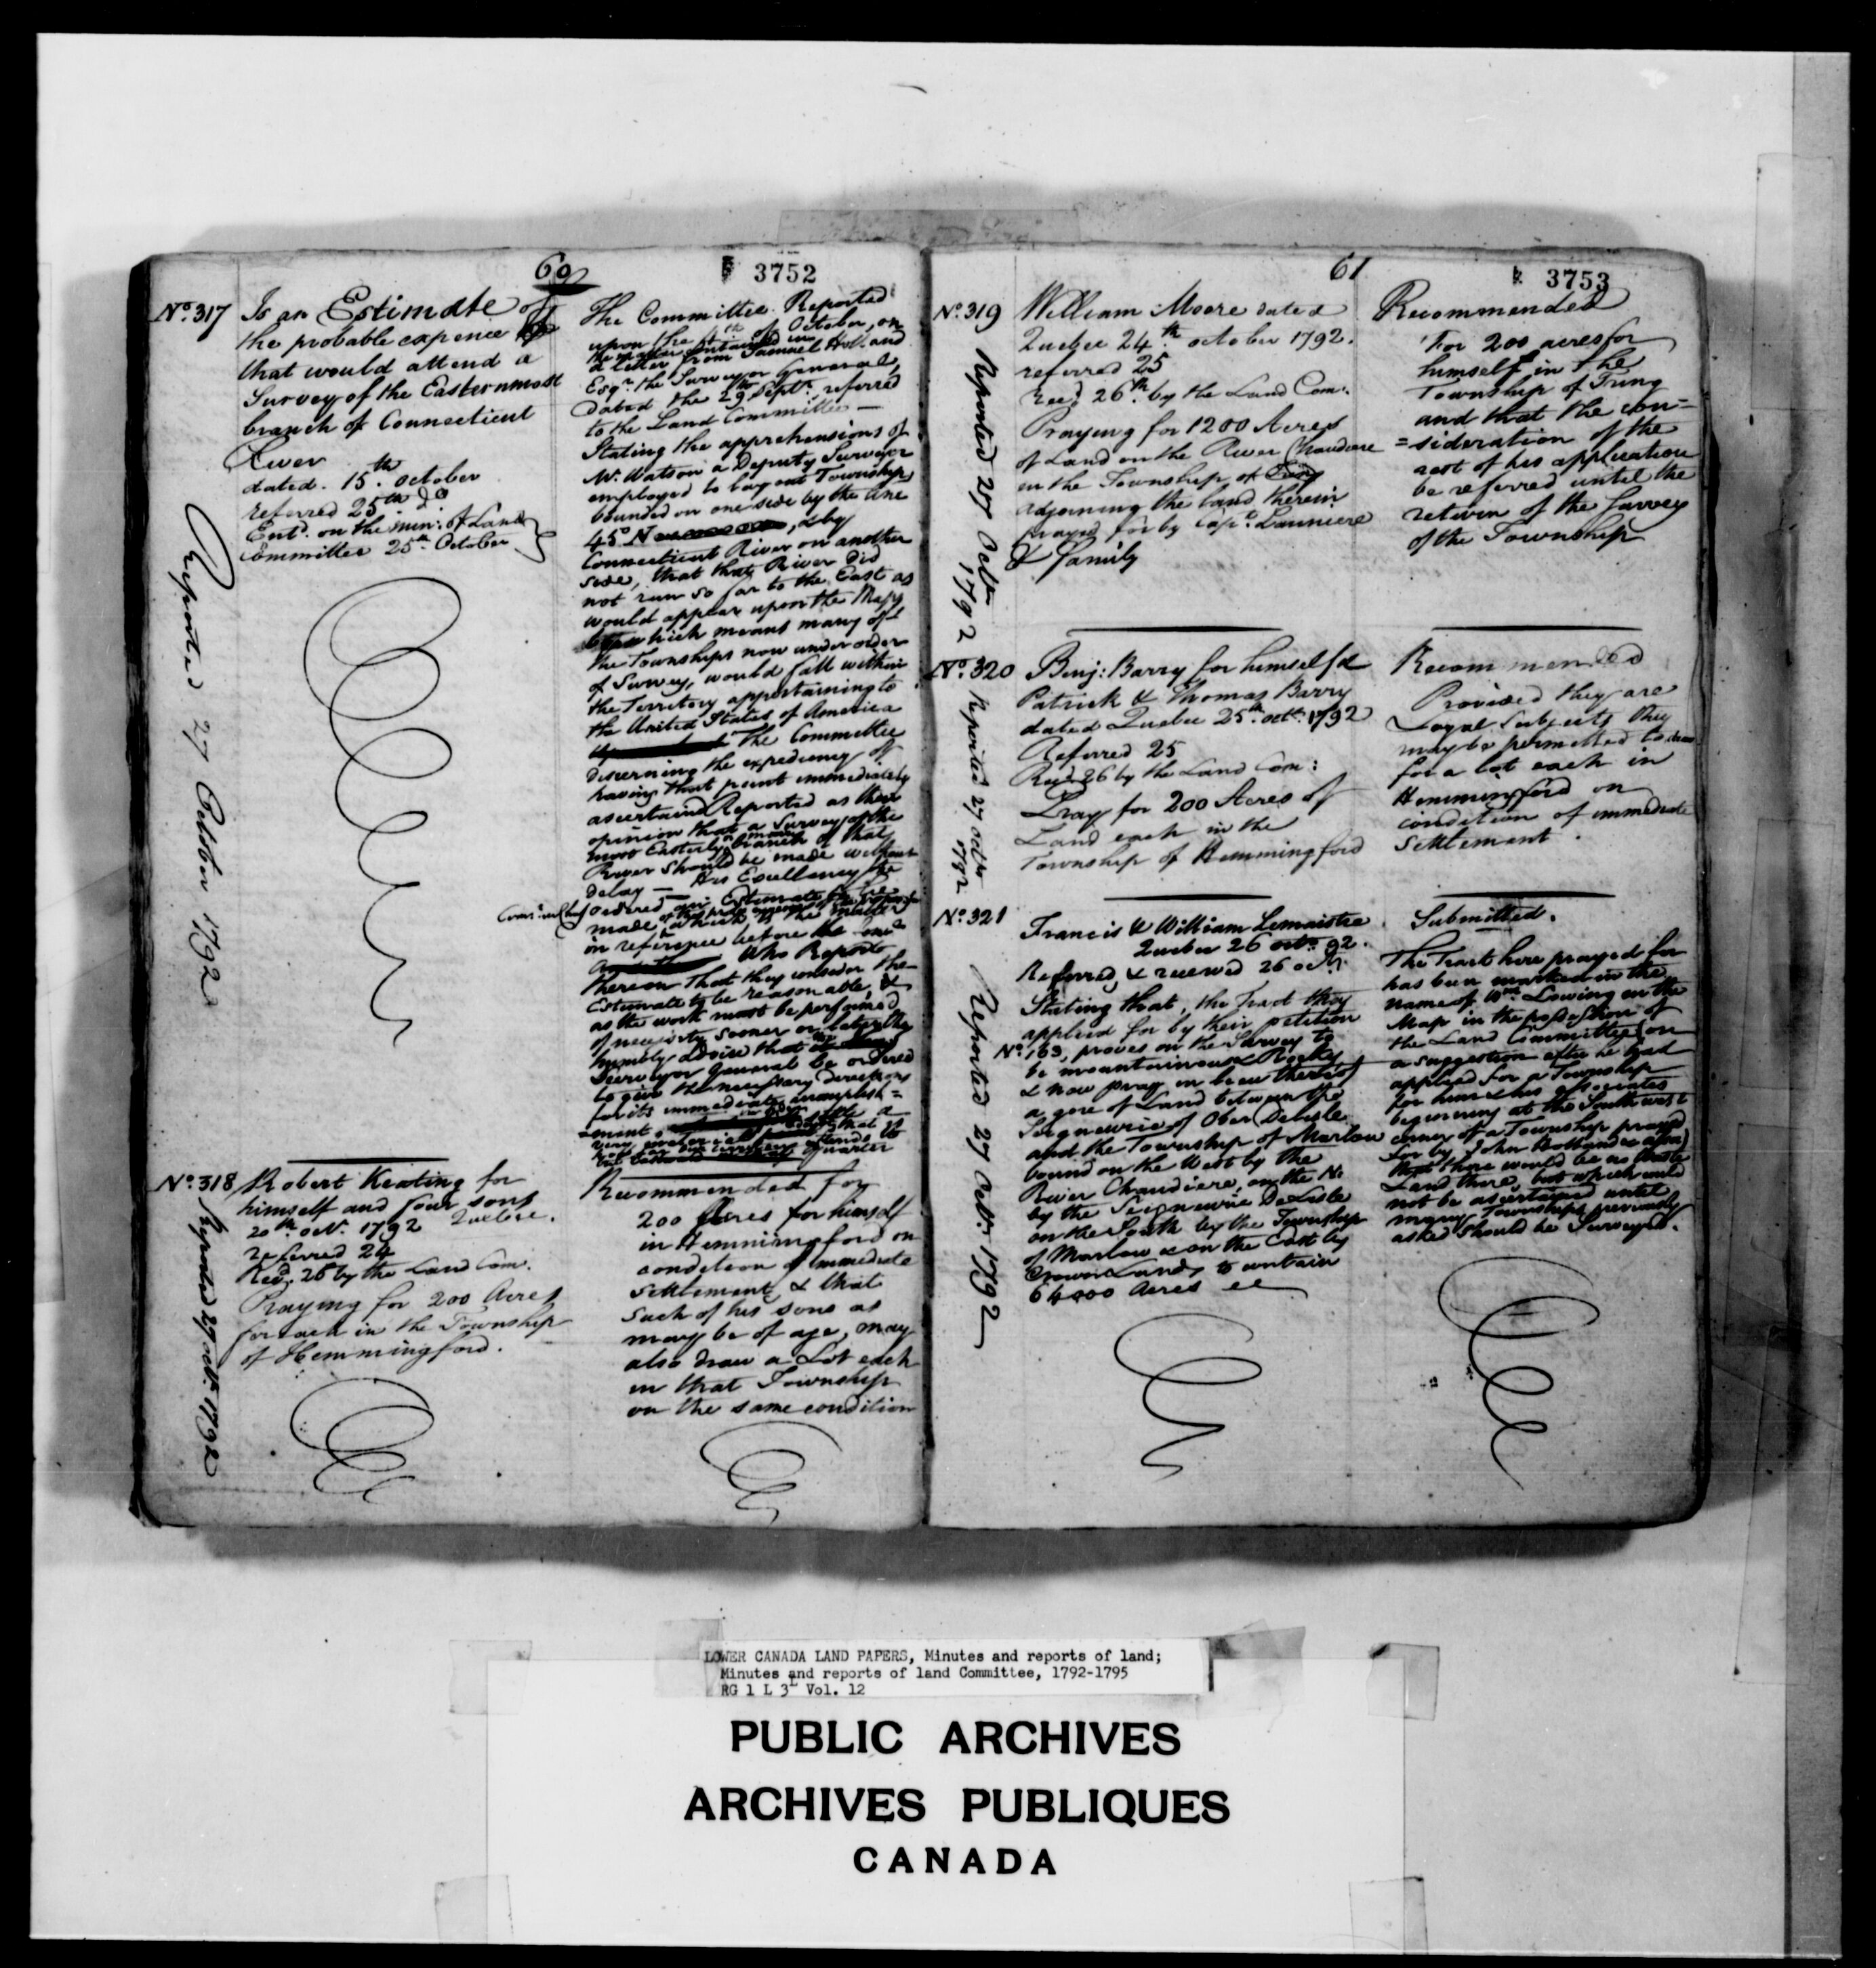 60
3752
No. 317
Is an Estimate of
the probable expence
that would attend a
Survey of the Easternmost
branch of Connecticut
River
dated. 15th. october
referred 25th do
Entd. on the min: of Land
Committee 25th October
Reported 27 October 1792
The Committee Reported
upon the 4th of October, on
the matter contained in
a letter from Samuel Holland
Esqr. the Surveyor General,
dated the 29th Septr. referred
to the Land Committee —
Stating the apprehensions of
Mr. Watson a Deputy Surveyor
employed to lay out Townships
bounded on one side by the line
45° N , & by
Connecticut River on another
side, that that River did
not run so far to the East as
would appear upon the Map
by which means many of
the Townships now under order
of Survey, would fall within
the Territory appertaining to
the United States of America
The Committee
discerning the expediency of
having that point immediately
ascertained Reported as their
opinion that a Survey of the
most Easterly branch of that
River should be made without
delay — His Excellency the
ordered an Estimate
made of the probable expence
in reference before the
Who Reports
thereon That they consider the
Estimate to be reasonable, &
as the work must be performed
of necessity sooner or later they
humbly advise that the
Surveyor General be ordered
to give the necessary directions
for its immediate accomplish=
=ment
quarter
No. 318
Robert Keating for
himself and four sons
20th octr. 1792 Quebec.
referred 24
Recd. 26 by the Land Com.
Praying for 200 Acres
for each in the Township
of Hemmingford.
Reported 27 octr. 1792
Recommended for
200 Acres for himself
in Hemmingford on
condition of immediate
settlement & that
such of his sons as
may be of age, may
also draw a Lot each
in that Township
on the same condition
61
3753
No. 319
William Moore dated
Quebec 24th. october 1792.
referred 25
Recd. 26th. by the Land Com:
Praying for 1200 Acres
of Land on the River Chaudiere
in the Township of Tring
adjoining the land therein
prayed for by Capt. Launiere
& family
Reported 27 Octber
1792
Recommended
For 200 acres for
himself in the
Township of Tring
and that the con=
=sideration of the
rest of his application
be referred until the
return of the Survey
of the Township
No. 320
Benj: Barry for himself &
Patrick & Thomas Barry
dated Quebec 25th. octr. 1792
Referred 25
Recd. 26 by the Land Com:
Pray for 200 Acres of
Land each in the
Township of Hemmingford
Reported 27 octber
1792
Recommended
Provided they are
Loyal Subjects they
may be permitted to draw
for a lot each in
Hemmingford on
condition of immediate
settlement.
No. 321
Francis & William Lemaistre
Quebec 26 octr. 92.
Referred & received 26 octr.
Stating that, the Tract they
applied for by their petition
No. 163, proves on the Survey to
be mountainous & Rocky
& now pray in lieu thereof
a gore of Land between the
Seigneurie of Ober Delisle
and the Township of Marlow
bound on the West by the
River Chaudiere, on the N:
by the Seigneurie DeLisle
on the South by the Township
of Marlow & on the East by
Crown Lands to contain
64000 Acres
Reported 27 Octr. 1792
Submitted.
The Tract here prayed for
has been marked in the
name of Wm. Lowing on the
Map in the possession of
the Land Committee on
a suggestion after he had
applied for a Township
for him & his associates
beginning at the South west
corner of a Township prayed
for by John Holland &
that there would be no
Land there, but which could
not be ascertained until
many Townships previously
asked should be Surveyed.
LOWER CANADA LAND PAPERS, Minutes and reports of land;
Minutes and reports of land Committee, 1792-1795
RG 1 L 3L Vol. 12
PUBLIC ARCHIVES
ARCHIVES PUBLIQUES
CANADA